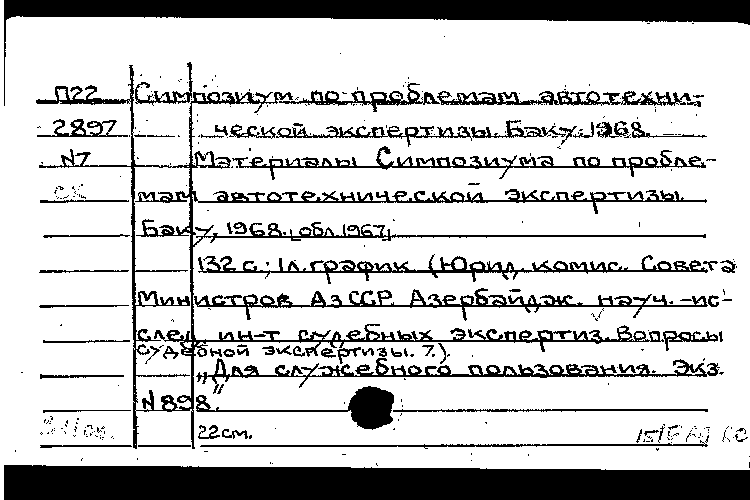 П22 Симпозиум по проблемам автотехни-
2897 ческой экспертизы. Баку. 1968.
N7 Материалы Симпозиума по пробле-
СХ мам автотехнической экспертизы.
Баку, 1968. [обл. 1967]
132 с.; 1л. график (Юрид. комис. Совета
Министров АзССР. Азербайдж. науч.-ис-
след. ин-т судебных экспертиз. Вопросы
судебной экспертизы. 7.).
„Для служебного пользования. Экз.
N 898."
22 см.